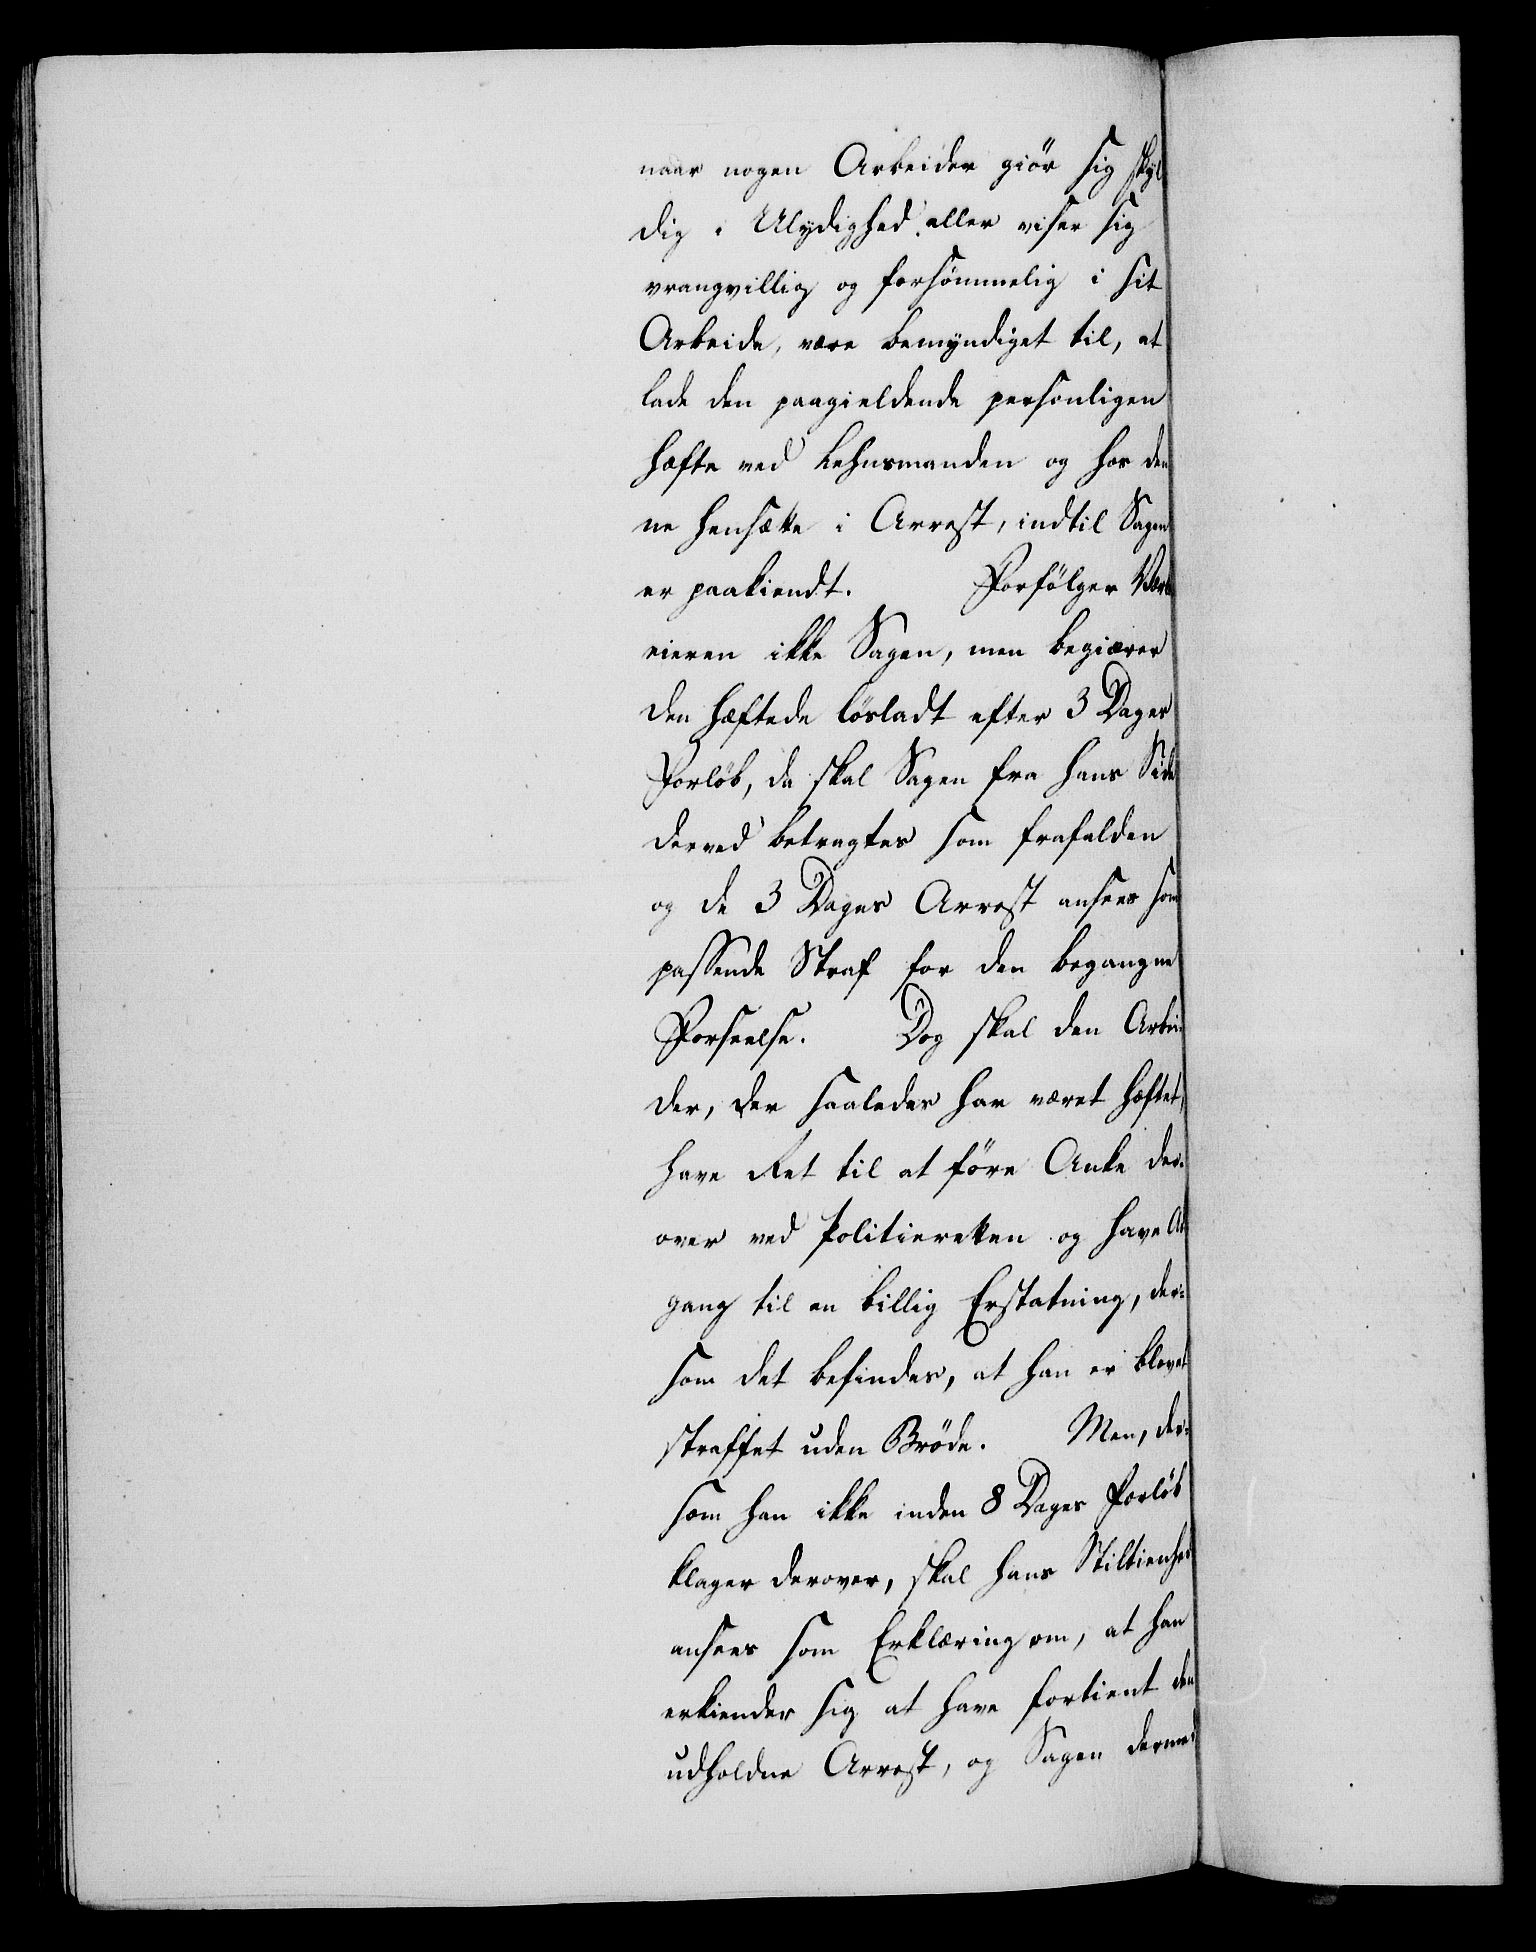 naar nogen Arbeider giör sig skyl
dig i Ulydighed eller viser sig
vrangvillig og forsømmelig i sit
Arbeide, være bemyndiget til, at
lade den paagieldende personligen
hæfte ved Lehnsmanden og hos den
ne hensætte i Arrest, indtil Sagen
er paakiendt. Forfölger Værk
eieren ikke Sagen, men begiærer
den hæftede lösladt efter 3 Dages
Forlöb, da skal Sagen fra hans Side
derved betragtes som frafalden
og de 3 Dages Arrest ansees som
passende Straf for den begangne
Forseelse. Dog skal den Arbei
der, der saaledes har været hæftet,
have Ret til at före Anke der-
over ved Politieretten og have Ad
gang til en billig Erstatning, der-
som det befindes, at han er blevet
straffet uden Bröde. Men, der-
som han ikke inden 8 Dages Forlöb
klager derover, skal hans Stiltienhed
ansees som Erklæring om, at han
erkiender sig at have fortient den
udholdne Arrest, og Sagen dermed